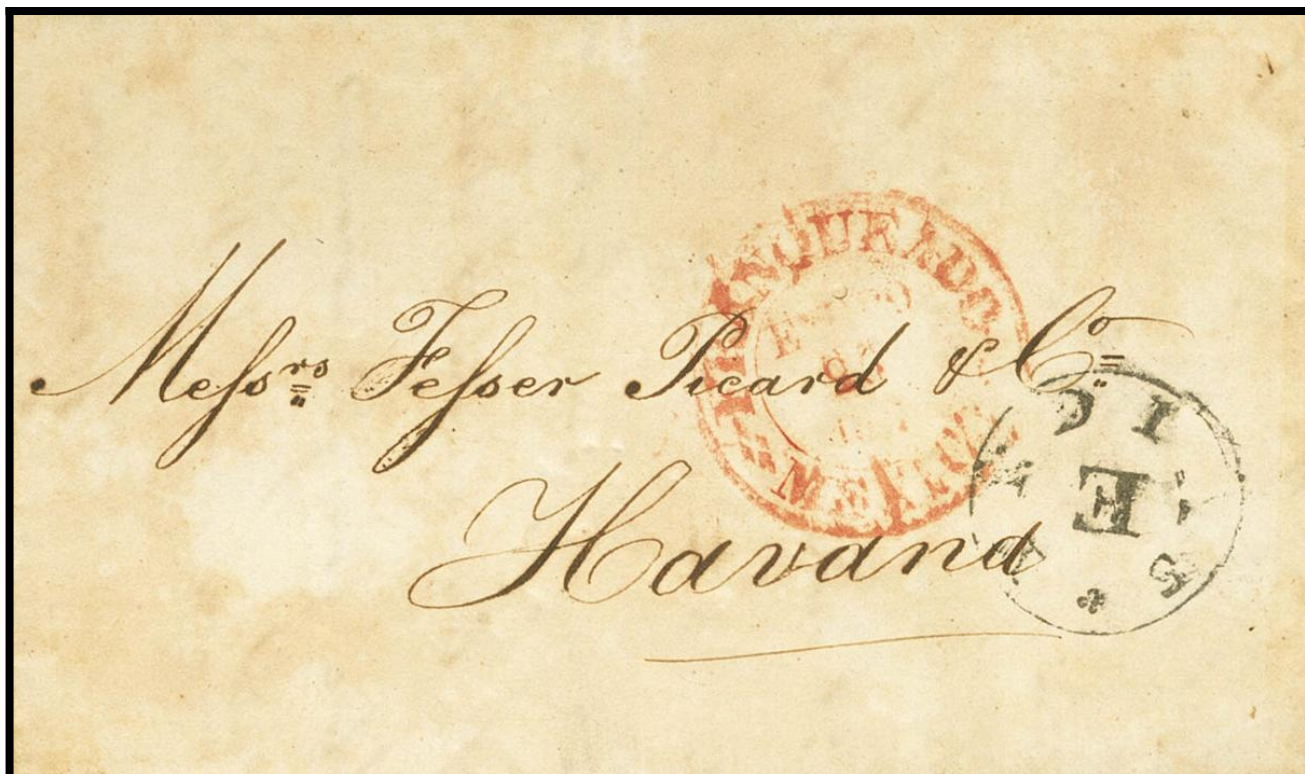 Messrs Fesser Picard & Co
Havana
FRANQUEADO
MEXICO
E